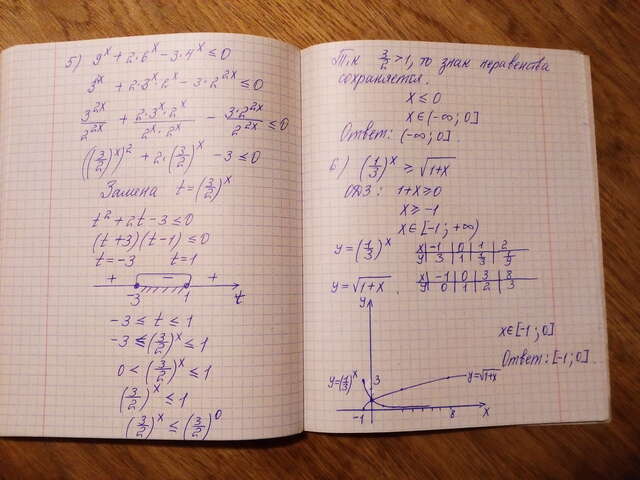 5) 9^x + 2·6^x - 3·4^x ≤ 0
3^x + 2·3^x·2^x - 3·2^{2x} ≤ 0
3^{2x}/2^{2x} + 2·3^x·2^x/2^x·2^x - 3·2^{2x}/2^{2x} ≤ 0
((3/2)^x)^2 + 2·(3/2)^x - 3 ≤ 0
Замена t = (3/2)^x
t^2 + 2t - 3 ≤ 0
(t+3)(t-1) ≤ 0
t = -3 t = 1
+ - +
-3 1 t
-3 ≤ t ≤ 1
-3 ≤ (3/2)^x ≤ 1
0 < (3/2)^x ≤ 1
(3/2)^x ≤ 1
(3/2)^x ≤ (3/2)^0
Т.к 3/2 > 1, то знак неравенства
сохраняется.
x ≤ 0
x ∈ (-∞; 0]
Ответ: (-∞; 0].
6) (1/3)^x ≥ √1+x
ОДЗ: 1+x ≥ 0
x ≥ -1
x ∈ [-1; +∞)
y = (1/3)^x
x -1 0 1 2
y 3 1 1/3 1/9
y = √1+x.
x -1 0 3 8
y 0 1 2 3
y
x ∈ [-1; 0]
Ответ: [-1; 0].
y = (1/3)^x 3 y = √1+x
-1 8 x